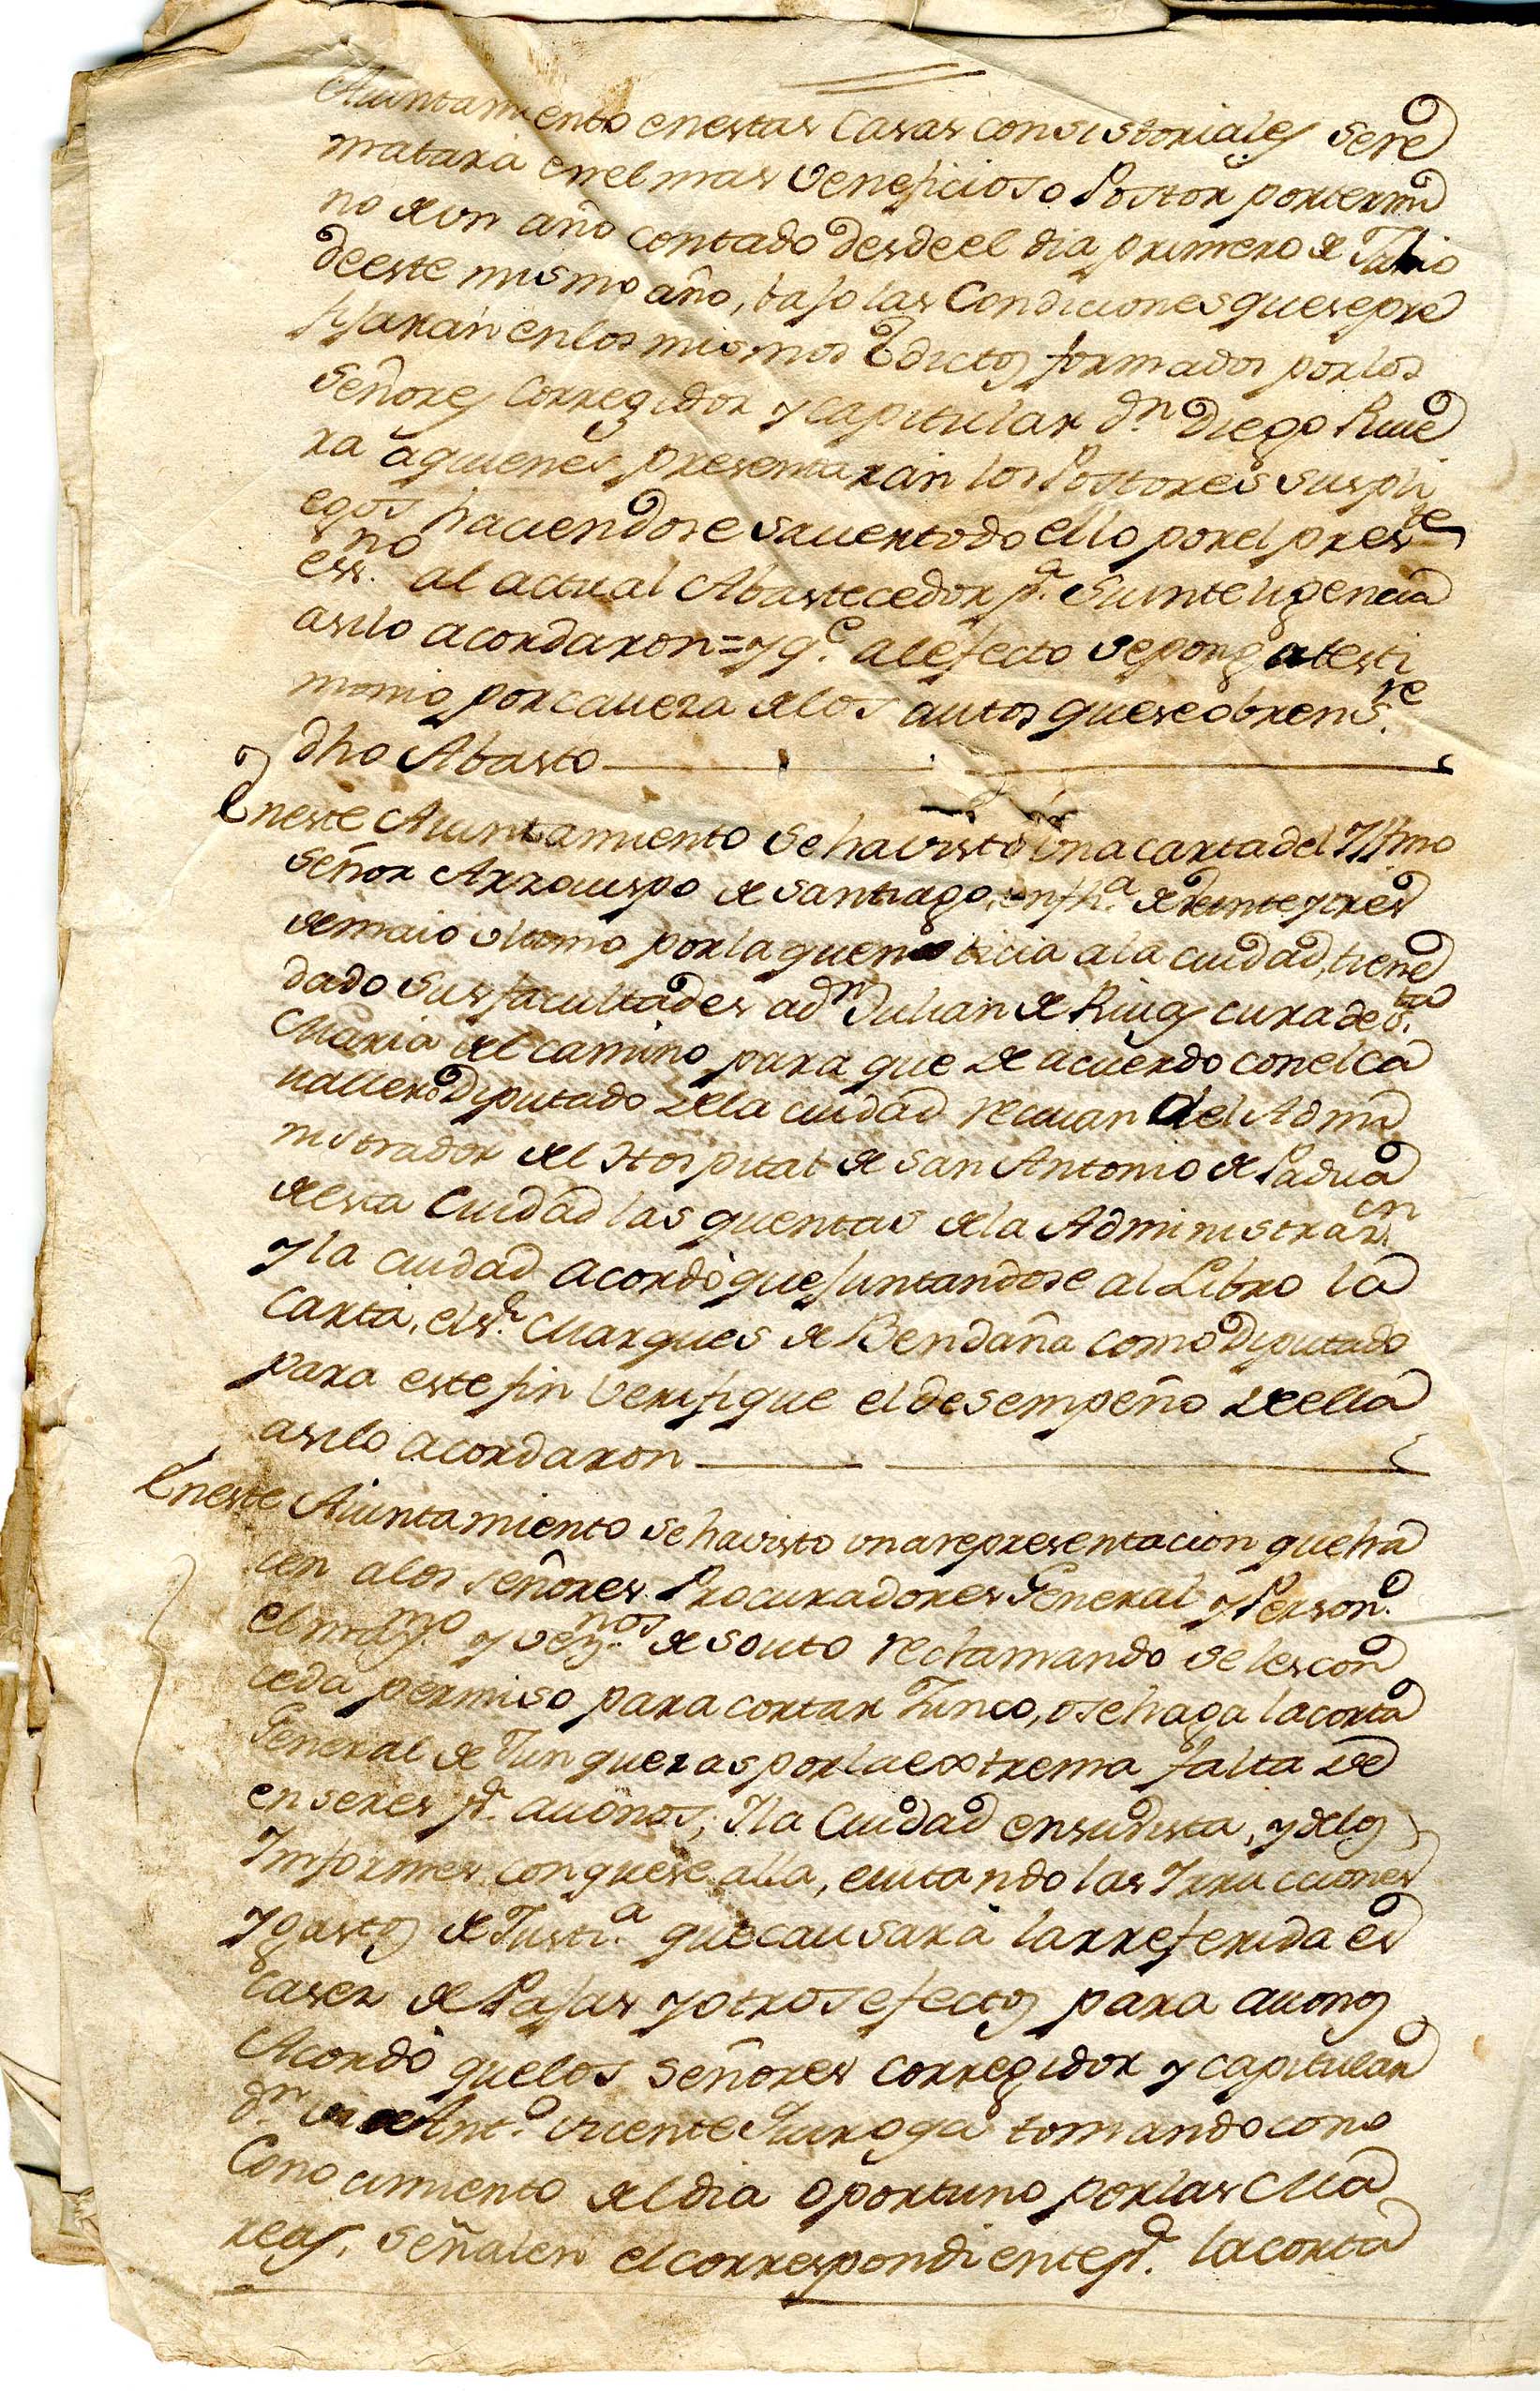 Aiuntamiento enestas Casas consistoriales sere
matará enel mas veneficioso Postor portermi
no de un año contado desdeel dia primero de Julio
deeste mismo año, bajo las Condiciones quesepre
fijarán enlos mismos Edictos formados porlos
Señores Corregidor y capitular Dn. Diego Rive
ra aquienes presentarán los Postores suspli
egos haciendose savertodo ello porel preste
essno. al actual Abastecedor pa. Suinteligencia
asilo acordaron = y qe. alefecto sepongatesti
monio porcaveza delos autos queseobrensre.
dho Abasto
Eneste Aiuntamiento sehavisto una cartadel Yllmo
Señor Arzovispo de Santiago, enfha. de veinteytres
demaio ultimo porlaquenoticia ala ciudad, tiene
dado susfacultades adn. Julian de Rivas curadesta.
Maria del camino para que de acuerdo conelca
vallero Diputado dela ciudad recivan del Admi
nistrador del Hospital de San Antonio de Padua
desta Ciudad las quentas dela Administrazn.
y la ciudad acordó quejuntandose al Libro la
carta, elsr. Marques de Bendaña como Diputado
para este fin verifique el desempeño deella
asilo acordaron
Eneste Aiuntamiento sehavisto unarepresentacion queha
cen alos señores Procuradores General y Persono.
elmrdmo. y veznos. de Souto reclamando selescon
ceda permiso para cortar Junco, osehaga lacorta
General de Junqueras porlaextrema falta de
enseres pa. avonos; Ila Ciudad ensuvista, ydelos
Informes conquese alla, evitando las Irrucciones
ygastos de Justia. quecausará larreferida es
casez de Pajas yotros efectos para avonos
Acordó quelos señores corregidor y capitular
Dn. Anto. vicente Quiroga tomando cono
Conocimiento deldia oportuno porlas Ma
reas, señalen elcorrespondiente pa. lacorta